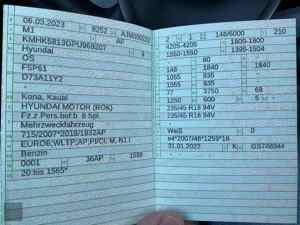 06.03.2023
8252
M1 AP
Hyundai
OS
F5P61
D73A11Y2
Kona, Kauai
HYUNDAI MOTOR (ROK)
Fz.z.Pers.bef.b. 8 Spl.
Mehrzweckfahrzeug
715/2007*2018/1832AP
EURO6;WLTP;AP;PI/CI, M, N1 I
Benzin
0001 36AP 1598
20:bis 1565*
2 1 146/6000 210
4205-4205 1800-1800
1550-1550 1395-1504
80
148 1840 1840
1065 935
1065 935
77 3750 68
1250 600 5
235/45 R18 94V
235/45 R18 94V
Weiß 0
e4*2007/46*1259*16
31.01.2022 K